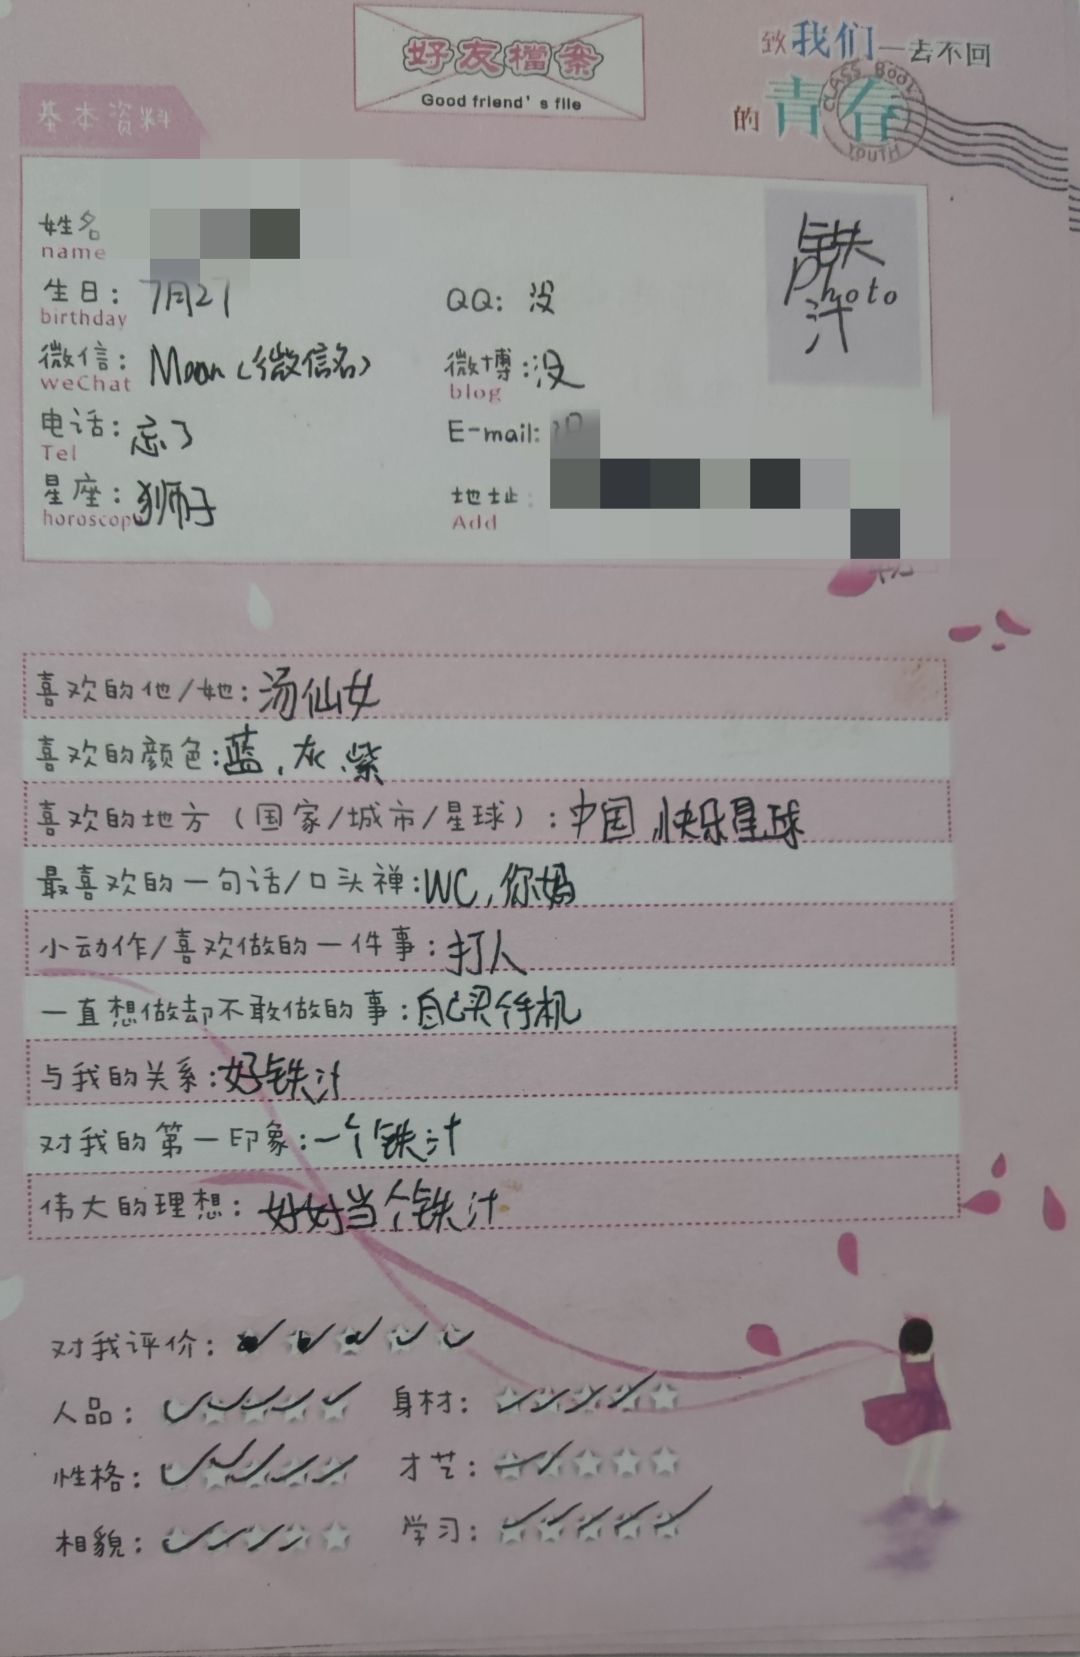 好友檔案
Good friend's file
致我们一去不回
的青春
CLASS BOOY
YOUTH
基本资料
姓名
name
生日: 7月27
birthday
QQ: 没
微信: Moon (微信名)
weChat
微博: 没
blog
电话: 忘了
Tel
E-mail:
星座: 狮子
horoscope
地址:
Add
铁
Photo
汁
喜欢的他/她: 汤仙女
喜欢的颜色: 蓝、灰、紫
喜欢的地方（国家/城市/星球）: 中国,快乐星球
最喜欢的一句话/口头禅: WC,你妈
小动作/喜欢做的一件事: 打人
一直想做却不敢做的事: 自己买手机
与我的关系: 好铁汁
对我的第一印象: 一个铁汁
伟大的理想: 好好当个铁汁
对我评价:
人品: 身材:
性格: 才艺:
相貌: 学习: